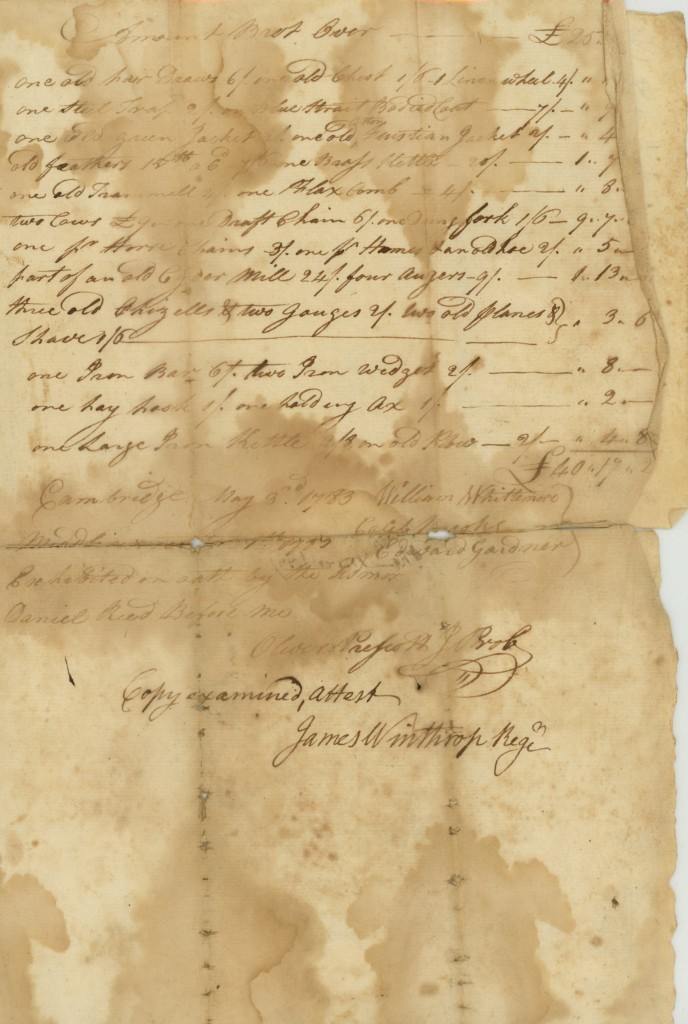 Amount Brot Over £25
one old pair Draws 6/ one old Chest 1/6 1 Linen wheel 4/ "
one Steel Trap 9/ one Blue Strait Bodied Coat 7/ " 9
one old green Jacket 2/ one old Cotton Fustian Jacket 2/ " 4
old feathers 15 lb a 6d one Brass Kettle 20/ 1 " 7
one old Trammell 4/ one Flax Comb 4/ " 8 "
two Cows £9 one Draft Chain 6/ one Dung fork 1/6 9 " 7 "
one pr Horse Chains 3/ one pr Hames & an old hoe 2/ " 5 "
part of an old Cyder Mill 24/ four Augers 9/ 1 " 13 "
three old Chizells & two Gouges 2/ two old planes & } " 3 " 6
Shave 1/6
one Iron Bar 6/ two Iron Wedges 2/ " 8 "
one hay hook 1/ one holding Ax 1/ " 2 "
one Large Iron Kettle 2/8 an old Plow 2/ " 4 " 8
£40 " 17 " 2
Cambridge May 3d 1783 William Whittemore
Caleb Brooks
Edward Gardner
Exhibited on oath by the Admor
Daniel Reed Before me
Oliver Prescott J Prob
Copy examined, Attest
James Winthrop Regr